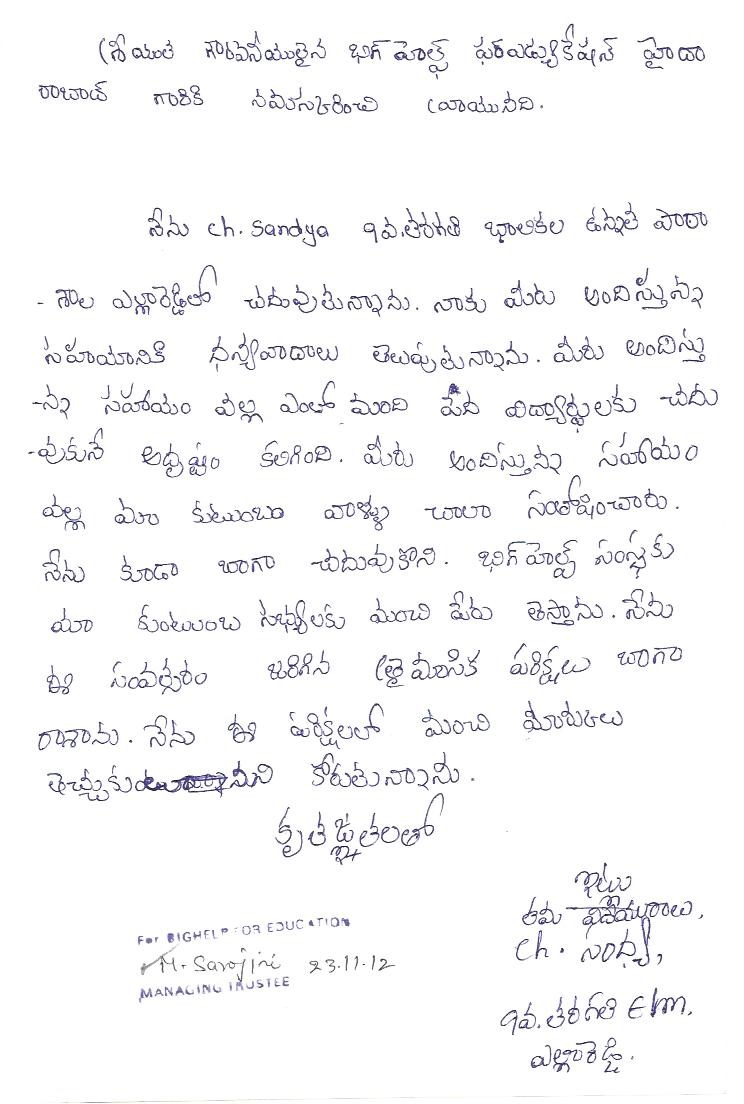 శ్రీయుత గౌరవనీయులైన భిగ్ హెల్ప్ ఫరఎడ్యుకేషన్ హైదా
రాబాద్ గారికి నమస్కరించి వ్రాయునది.
నేను ch. Sandya 9వ.తరగతి భాలికల ఉన్నత పాఠా
- శాల ఎల్లారెడ్డిలో చదువుతున్నాను. నాకు మీరు అందిస్తున్న
సహయానికి ధన్యవాదాలు తెలుపుతున్నాను. మీరు అందిస్తు
-న్న సహాయం వల్ల ఎంతో మంది పేద విద్యార్థులకు చదు
-వుకునే అధృష్టం కలిగింది. మీరు అందిస్తున్న సహాయం
వల్ల మా కుటుంబం వాళ్ళు చాలా సంతోషించారు.
నేను కూడా బాగా చదువుకొని. భిగ్ హెల్ప్ సంస్థకు
మా కుంటుంబ సభ్యులకు మంచి పేరు తెస్తాను. నేను
ఈ సంవత్సరం జరిగిన త్రైమాసిక పరిక్షలు బాగా
రాశాను. నేను ఈ పరిక్షలలో మంచి మార్కులు
తెచ్చుకుం నని కోరుతున్నాను.
కృతజ్ఞతలతో
ఇట్లు
తమ విదేయురాలు,
ch. సంధ్య,
9వ.తరగతి E/m,
ఎల్లారెడ్డి.
For BIGHELP FOR EDUCATION
M. Sarojini 23.11.12
MANAGING TRUSTEE